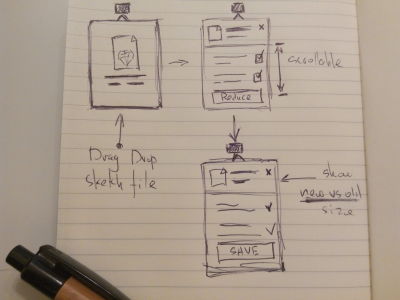 x
scrollable
Reduce
Drag Drop
sketch file
x
show
new vs old
size
SAVE